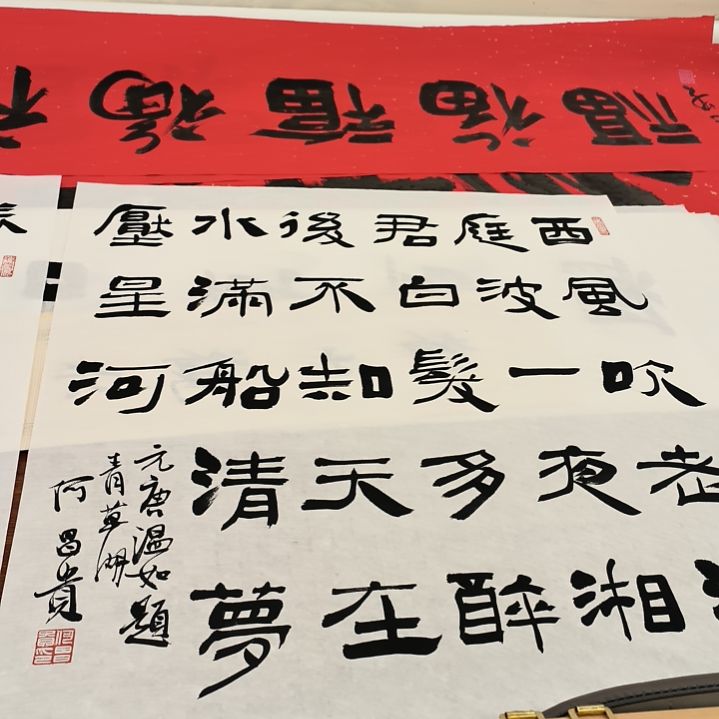 福福福福
西風吹老
庭波一夜湘
君白髮多醉
後不知天在
水滿船清夢
壓星河
元唐温如題
青草湖
何昌貴